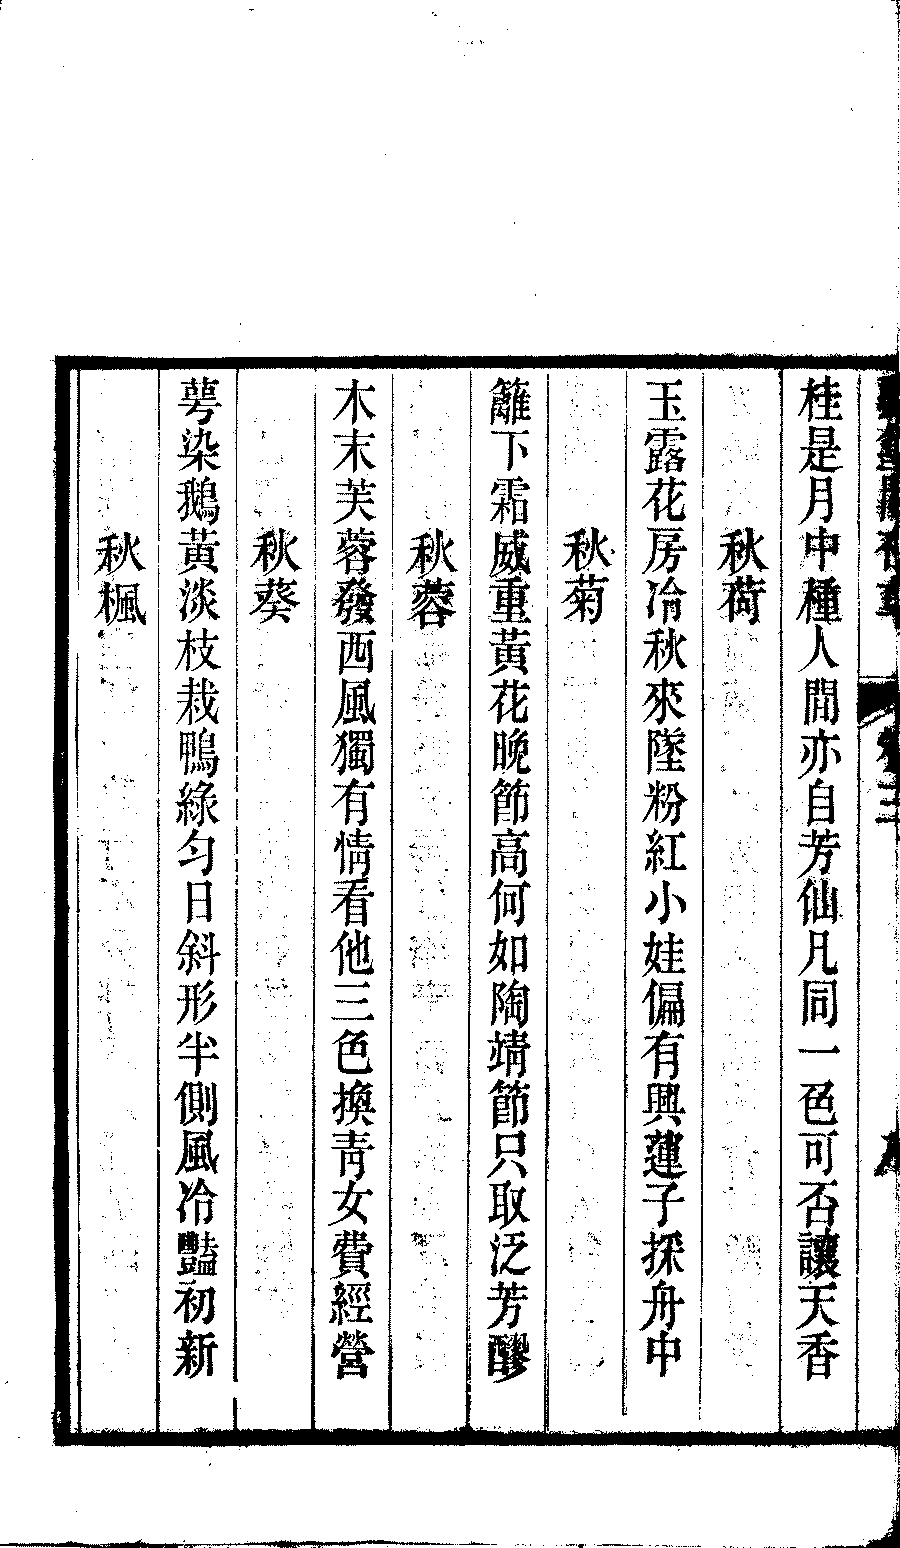 桂是月中種人間亦自芳仙凡同一色可否讓天香
秋荷
玉露花房冷秋來墜粉紅小娃偏有興蓮子探舟中
秋菊
籬下霜威重黃花晚節高何如陶靖節只取泛芳醪
秋蓉
木末芙蓉發西風獨有情看他三色換靑女費經營
秋葵
萼染鵝黃淡枝栽鴨綠勻日斜形半側風冷豔初新
秋楓